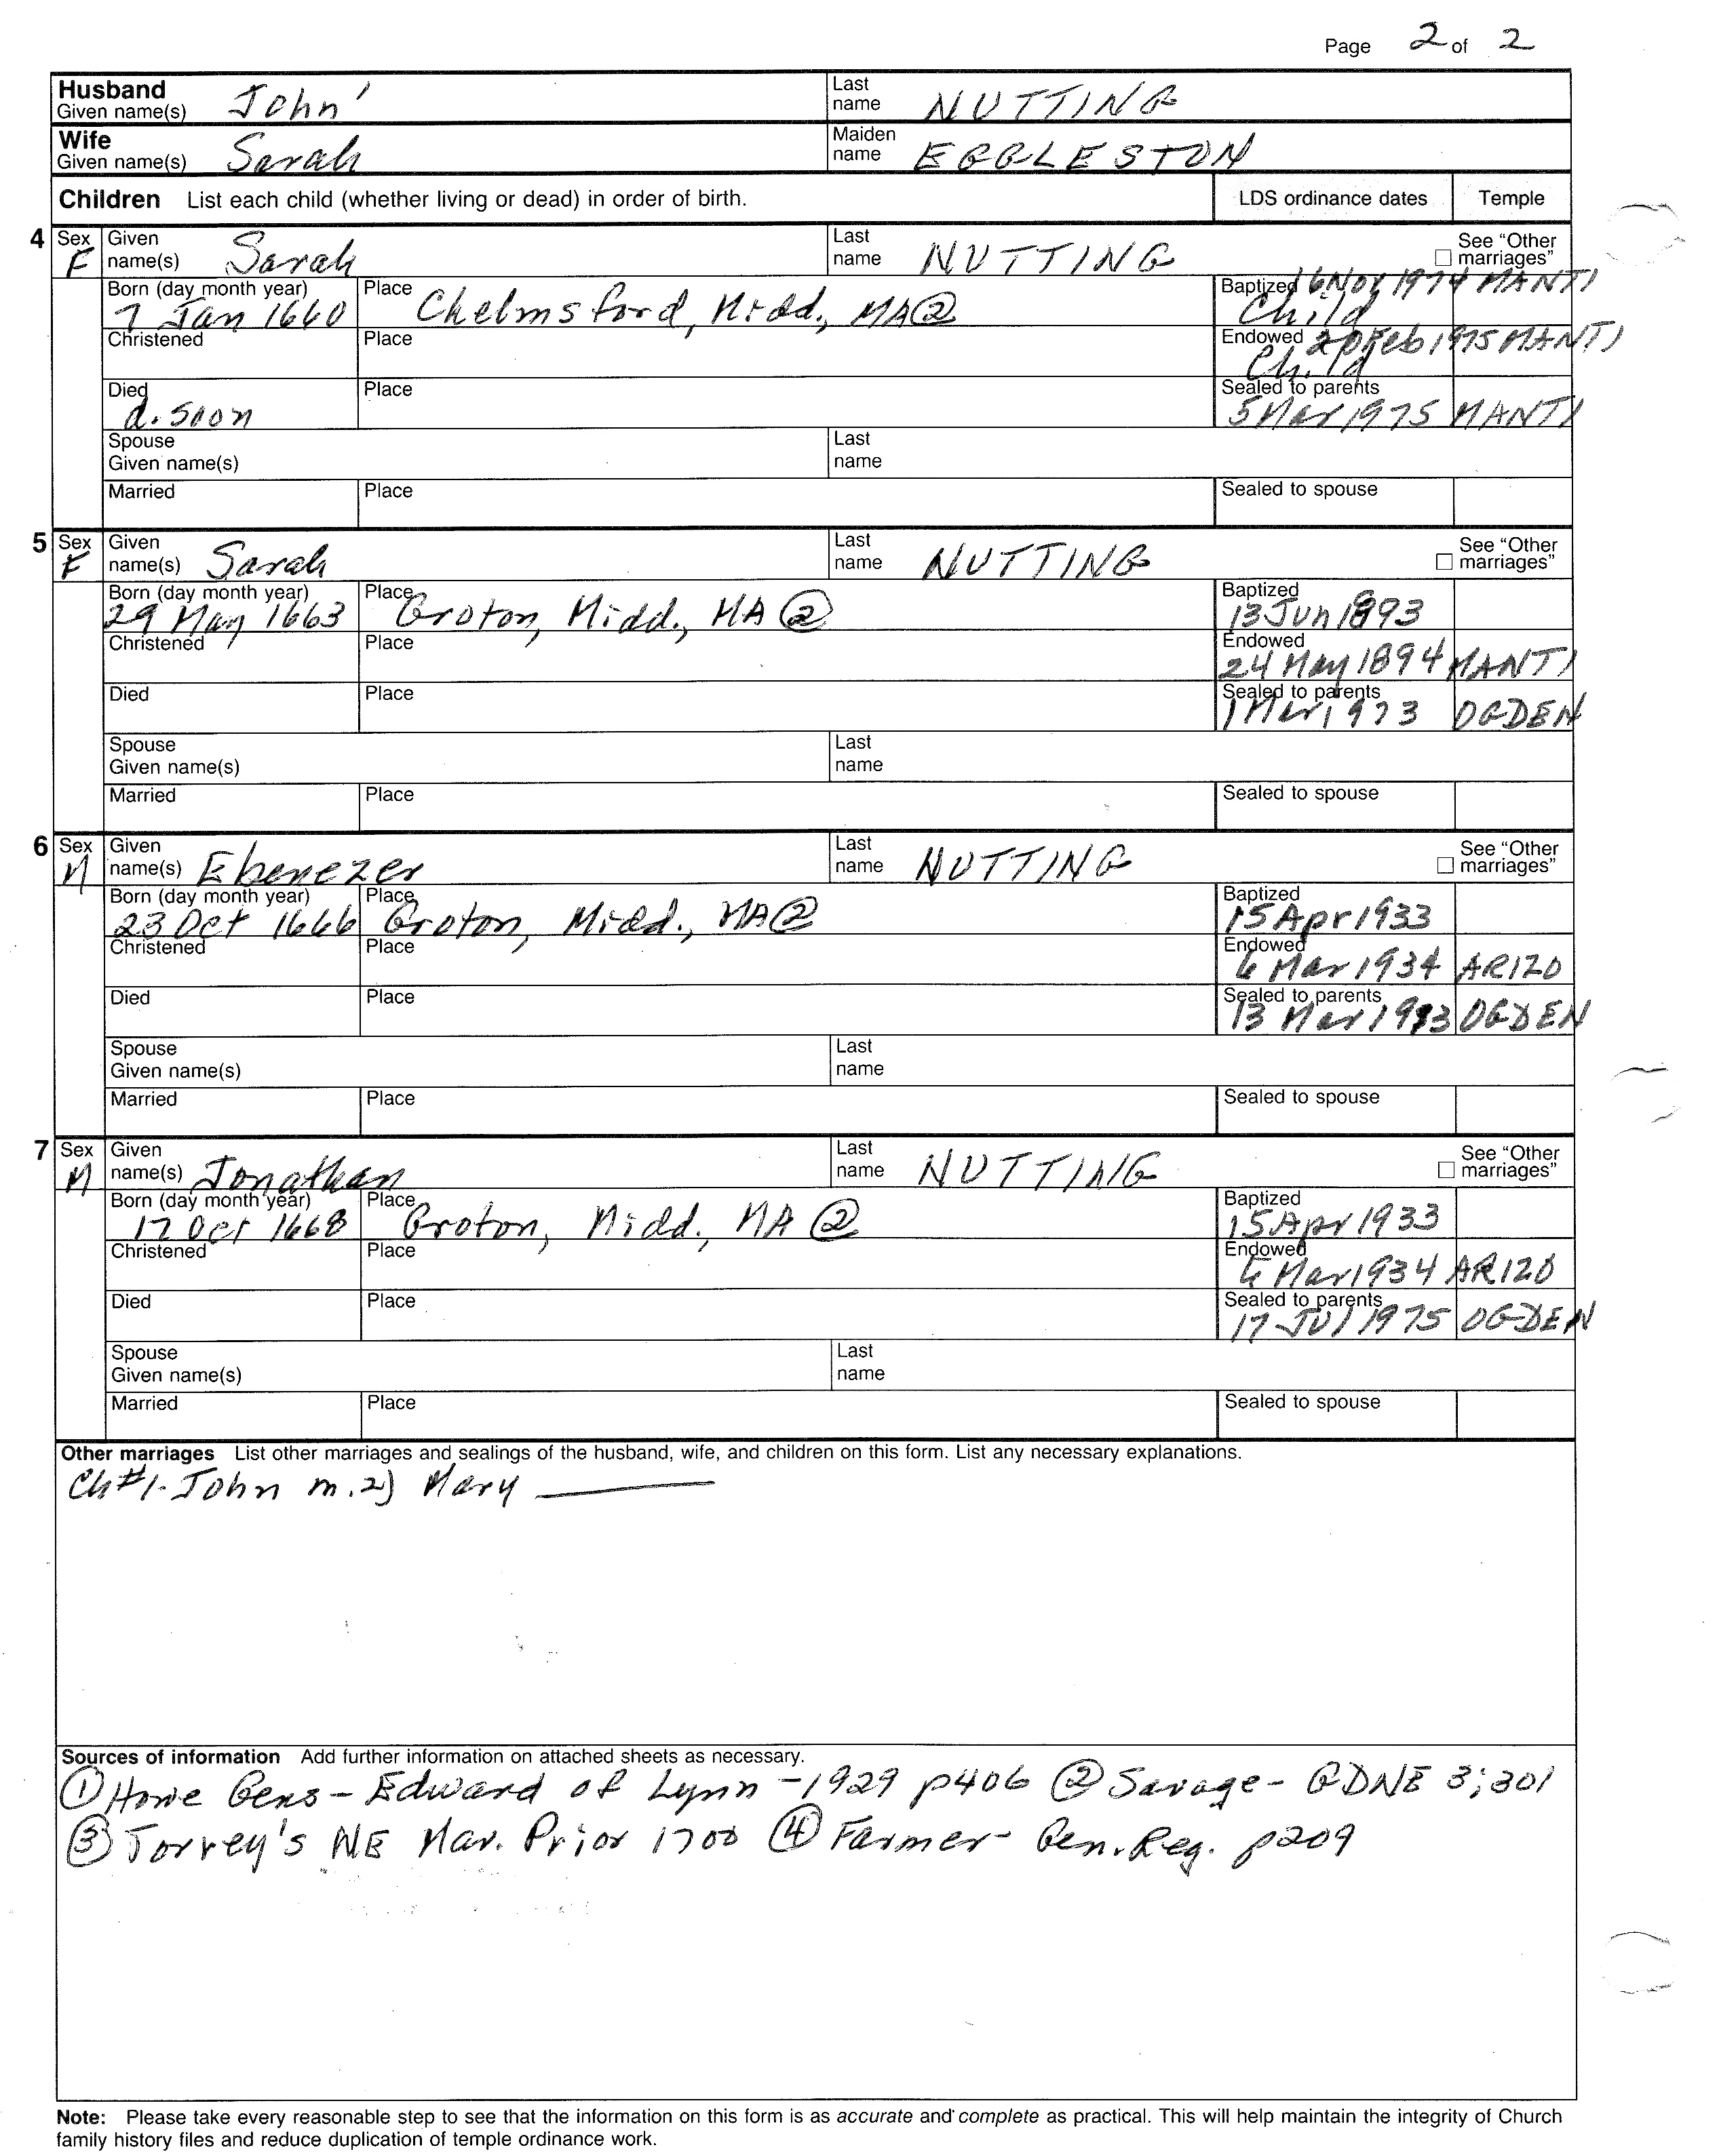 Page 2 of 2
Husband Given name(s) John' Last name NUTTING
Wife Given name(s) Sarah Maiden name EGGLESTON
Children List each child (whether living or dead) in order of birth. LDS ordinance dates Temple
4 Sex F Given name(s) Sarah Last name NUTTING See "Other marriages"
Born (day month year) 7 Jan 1660 Place Chelmsford, Midd., MA ② Baptized 16 Nov 1974 MANTI Child
Christened Place Endowed 20 Feb 1975 MANTI Child
Died d. soon Place Sealed to parents 5 Mar 1975 MANTI
Spouse Given name(s) Last name
Married Place Sealed to spouse
5 Sex F Given name(s) Sarah Last name NUTTING See "Other marriages"
Born (day month year) 29 May 1663 Place Groton, Midd., MA ② Baptized 13 Jun 1893
Christened Place Endowed 24 May 1894 MANTI
Died Place Sealed to parents 1 Mar 1973 OGDEN
Spouse Given name(s) Last name
Married Place Sealed to spouse
6 Sex M Given name(s) Ebenezer Last name NUTTING See "Other marriages"
Born (day month year) 23 Oct 1666 Place Groton, Midd., MA ② Baptized 15 Apr 1933
Christened Place Endowed 6 Mar 1934 ARIZO
Died Place Sealed to parents 13 Mar OGDEN
Spouse Given name(s) Last name
Married Place Sealed to spouse
7 Sex M Given name(s) Jonathan Last name NUTTING See "Other marriages"
Born (day month year) 17 Oct 1668 Place Groton, Midd., MA ② Baptized 15 Apr 1933
Christened Place Endowed 6 Mar 1934 ARIZO
Died Place Sealed to parents 17 Jul 1975 OGDEN
Spouse Given name(s) Last name
Married Place Sealed to spouse
Other marriages List other marriages and sealings of the husband, wife, and children on this form. List any necessary explanations.
Ch#1-John m.2) Mary ———
Sources of information Add further information on attached sheets as necessary.
① Howe Gens - Edward of Lynn - 1929 p406 ② Savage - GDNE 3;301
③ Torrey's NE Mar. Prior 1700 ④ Farmer - Gen. Reg. p209
Note: Please take every reasonable step to see that the information on this form is as accurate and complete as practical. This will help maintain the integrity of Church
family history files and reduce duplication of temple ordinance work.